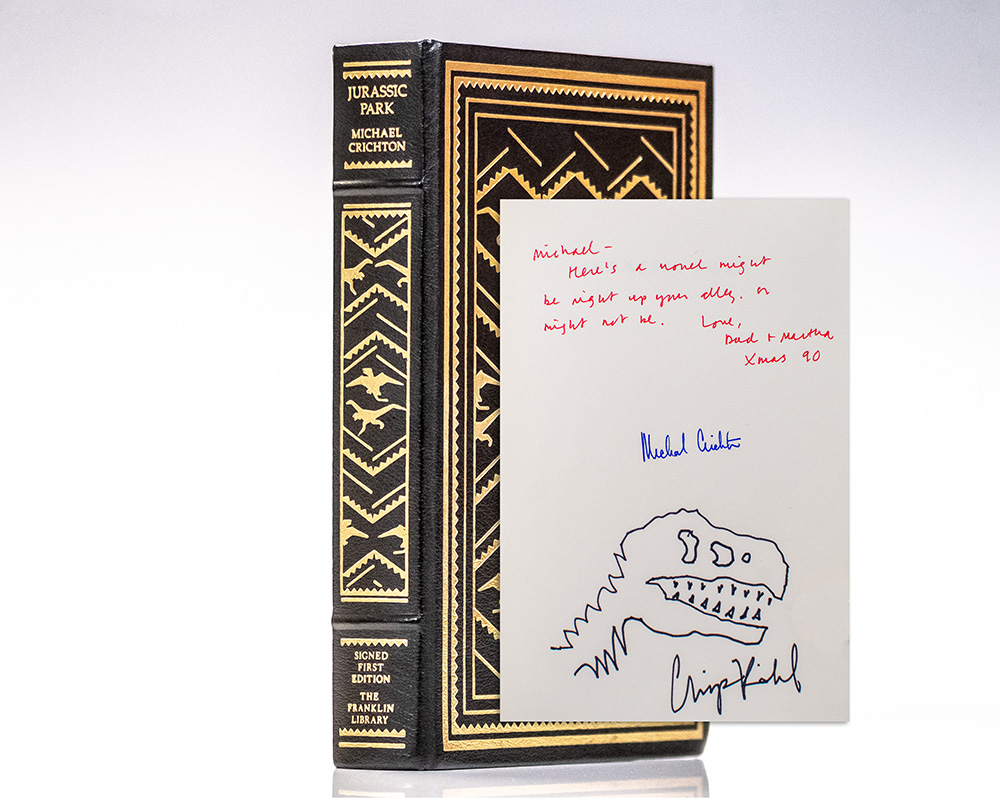 JURASSIC
PARK
MICHAEL
CRICHTON
SIGNED
FIRST
EDITION
THE
FRANKLIN
LIBRARY
Michael –
Here's a novel might
be right up your alley. or
might not be. Love,
Dad + Martha
Xmas 90
Michael Crichton
Chip Kidd